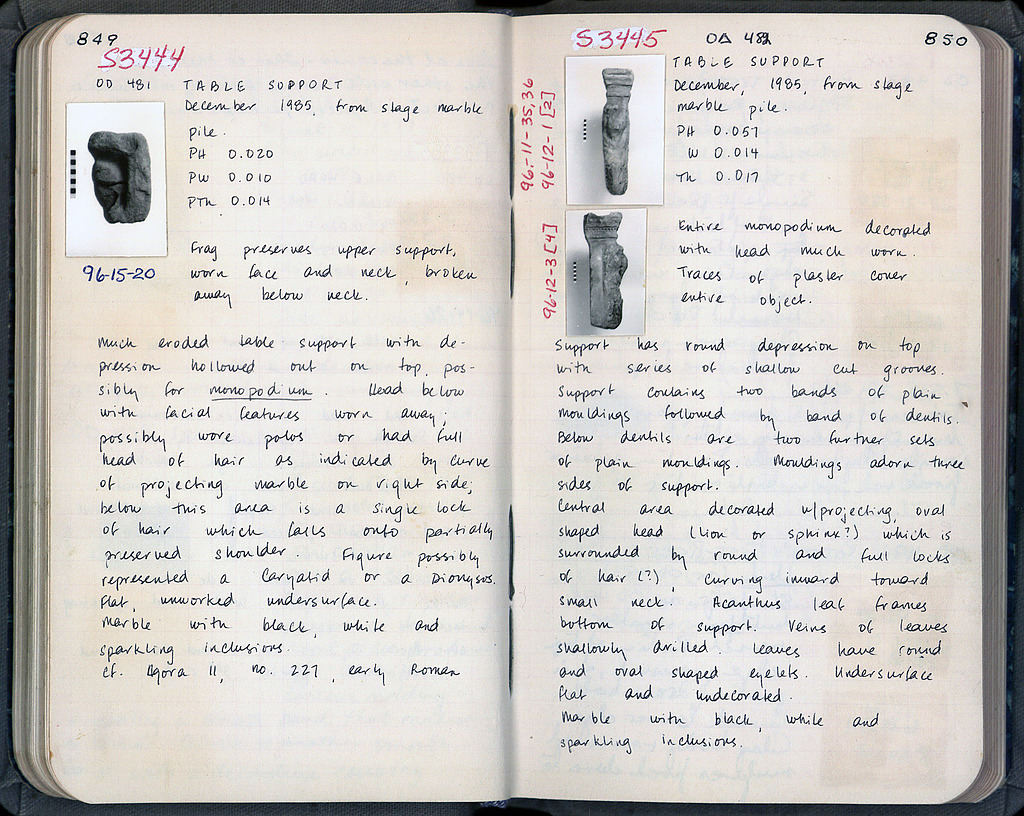 849
S3444
OD 481 TABLE SUPPORT
December 1985, from stage marble
pile.
PH 0.020
PW 0.010
PTh 0.014
96-15-20
Frag preserves upper support,
worn face and neck, broken
away below neck.
Much eroded table support with de-
pression hollowed out on top, pos-
sibly for monopodium. Head below
with facial features worn away;
possibly wore polos or had full
head of hair as indicated by curve
of projecting marble on right side;
below this area is a single lock
of hair which falls onto partially
preserved shoulder. Figure possibly
represented a Caryatid or a Dionysos.
Flat, unworked undersurface.
Marble with black, white and
sparkling inclusions.
cf. Agora 11, no. 227, early Roman
850
S3445 OD 482
TABLE SUPPORT
December, 1985, from stage
marble pile.
PH 0.057
W 0.014
Th 0.017
96-11-35,36
96-12-1 [2]
96-12-3 [4]
Entire monopodium decorated
with head much worn.
Traces of plaster cover
entire object.
Support has round depression on top
with series of shallow cut grooves.
Support contains two bands of plain
mouldings followed by band of dentils.
Below dentils are two further sets
of plain mouldings. Mouldings adorn three
sides of support.
Central area decorated w/projecting, oval
shaped head (lion or sphinx?) which is
surrounded by round and full locks
of hair (?), curving inward toward
small neck. Acanthus leaf frames
bottom of support. Veins of leaves
shallowly drilled. leaves have round
and oval shaped eyelets. Undersurface
flat and undecorated.
Marble with black, white and
sparkling inclusions.